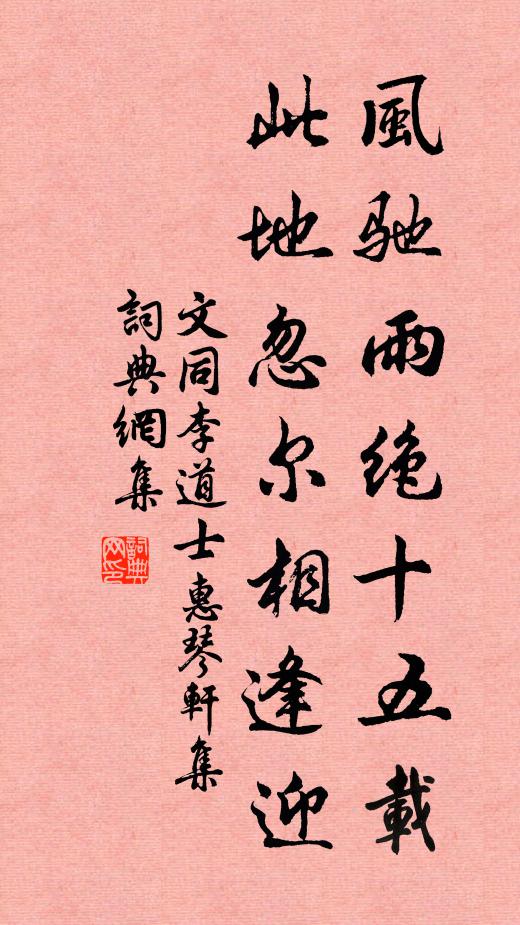 風馳雨絶十五載
此地忽尔相逢迎
文同李道士惠琴軒集
詞典網集
詞典网印